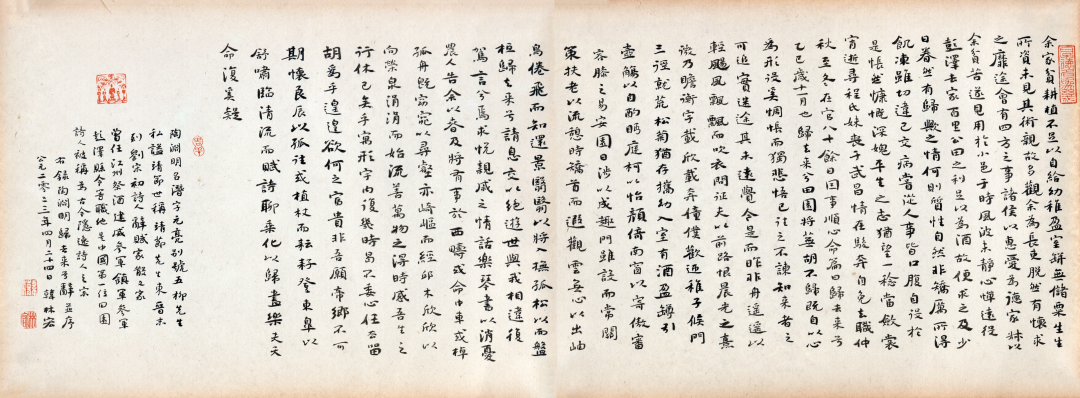 余家貧耕植不足以自給幼稚盈室缾無儲粟生生
所資未見其術親故多勸余為長吏脫然有懷求
之靡途會有四方之事諸侯以惠愛為德家叔以
余貧苦遂見用於小邑于時風波未靜心憚遠役
彭澤去家百里公田之利足以為酒故便求之及少
日眷然有歸歟之情何則質性自然非矯厲所得
飢凍雖切違己交病嘗從人事皆口腹自役於
是悵然慷慨深媿平生之志猶望一稔當斂裳
宵逝尋程氏妹喪于武昌情在駿奔自免去職仲
秋至冬在官八十餘日因事順心命篇曰歸去來兮
乙巳歲十一月也歸去來兮田園將蕪胡不歸既自以心
為形役奚惆悵而獨悲悟已往之不諫知來者之
可追實迷途其未遠覺今是而昨非舟遙遙以
輕颺風飄飄而吹衣問征夫以前路恨晨光之熹
微乃瞻衡宇載欣載奔僮僕歡迎稚子候門
三徑就荒松菊猶存攜幼入室有酒盈罇引
壺觴以自酌眄庭柯以怡顏倚南窗以寄傲審
容膝之易安園日涉以成趣門雖設而常關
策扶老以流憩時矯首而遐觀雲無心以出岫
鳥倦飛而知還景翳翳以將入撫孤松以而盤
桓歸去來兮請息交以絕遊世與我相違復
駕言兮焉求悅親戚之情話樂琴書以消憂
農人告余以春及將有事於西疇或命巾車或棹
孤舟既窈窕以尋壑亦崎嶇而經邱木欣欣以
向榮泉涓涓而始流善萬物之得時感吾生之
行休已矣乎寓形宇內復幾時曷不委心任去留
胡為乎遑遑欲何之富貴非吾願帝鄉不可
期懷良辰以孤往或植杖而耘耔登東皋以
舒嘯臨清流而賦詩聊乘化以歸盡樂夫天
命復奚疑
陶淵明名潛字元亮別號五柳先生
私謚靖節世稱靖節先生東晉末
到劉宋初詩人辭賦家散文家
曾任江州祭酒建威參軍鎮軍參軍
彭澤縣令等職他是中國第一位田園
詩人被稱為古今隱逸詩人之宗
右錄陶淵明歸去來兮辭並序
公元二零二三年四月二十四日韓林